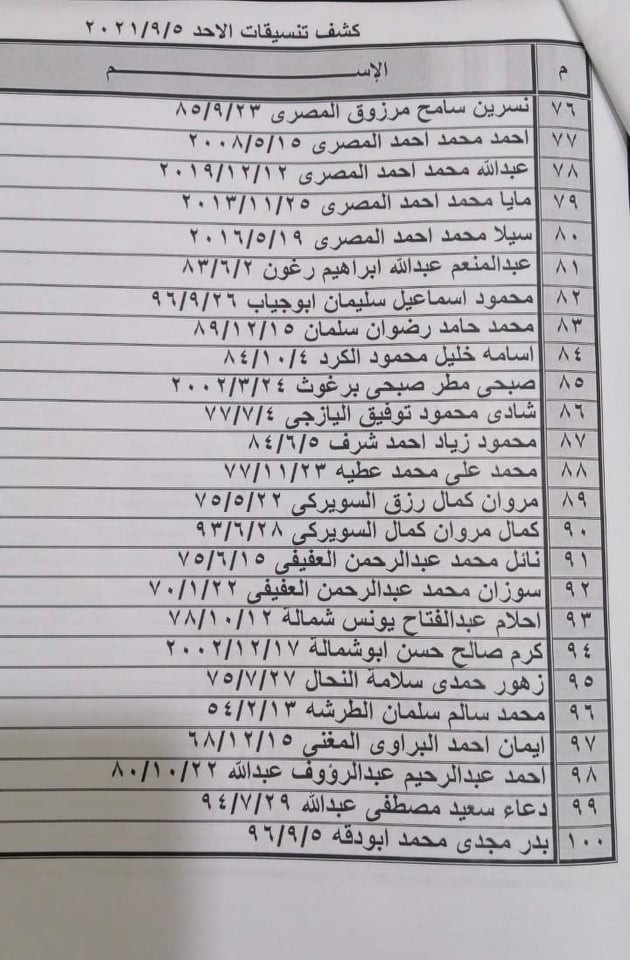 كشف تنسيقات الاحد ٢٠٢١/٩/٥
م الإســـــــــــــــــــــم
٧٦ نسرين سامح مرزوق المصرى ٨٥/٩/٢٣
٧٧ احمد محمد احمد المصرى ٢٠٠٨/٥/١٥
٧٨ عبدالله محمد احمد المصرى ٢٠١٩/١٢/١٢
٧٩ مايا محمد احمد المصرى ٢٠١٣/١١/٢٥
٨٠ سيلا محمد احمد المصرى ٢٠١٦/٥/١٩
٨١ عبدالمنعم عبدالله ابراهيم رغون ٨٣/٦/٢
٨٢ محمود اسماعيل سليمان ابوجياب ٩٦/٩/٢٦
٨٣ محمد حامد رضوان سلمان ٨٩/١٢/١٥
٨٤ اسامه خليل محمود الكرد ٨٤/١٠/٤
٨٥ صبحى مطر صبحى برغوث ٢٠٠٢/٣/٢٤
٨٦ شادى محمود توفيق اليازجى ٧٧/٧/٤
٨٧ محمود زياد احمد شرف ٨٤/٦/٥
٨٨ محمد على محمد عطيه ٧٧/١١/٢٣
٨٩ مروان كمال رزق السويركى ٧٥/٥/٢٢
٩٠ كمال مروان كمال السويركى ٩٣/٦/٢٨
٩١ نائل محمد عبدالرحمن العفيفى ٧٥/٦/١٥
٩٢ سوزان محمد عبدالرحمن العفيفى ٧٠/١/٢٢
٩٣ احلام عبدالفتاح يونس شمالة ٧٨/١٠/١٢
٩٤ كرم صالح حسن ابوشمالة ٢٠٠٢/١٢/١٧
٩٥ زهور حمدى سلامة النحال ٧٥/٧/٢٧
٩٦ محمد سالم سلمان الطرشه ٥٤/٢/١٣
٩٧ ايمان احمد البراوى المغنى ٦٨/١٢/١٥
٩٨ احمد عبدالرحيم عبدالرؤوف عبدالله ٨٠/١٠/٢٢
٩٩ دعاء سعيد مصطفى عبدالله ٩٤/٧/٢٩
١٠٠ بدر مجدى محمد ابودقه ٩٦/٩/٥